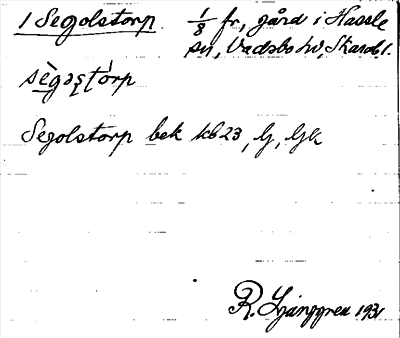 1 Segolstorp. 1/8 fr, gård i Hassle
sn, Vadsbo hd, Skarab. l.
sègəstórp
Segolstorp bek kb 23, G, Gk
R. Ljunggren 1931